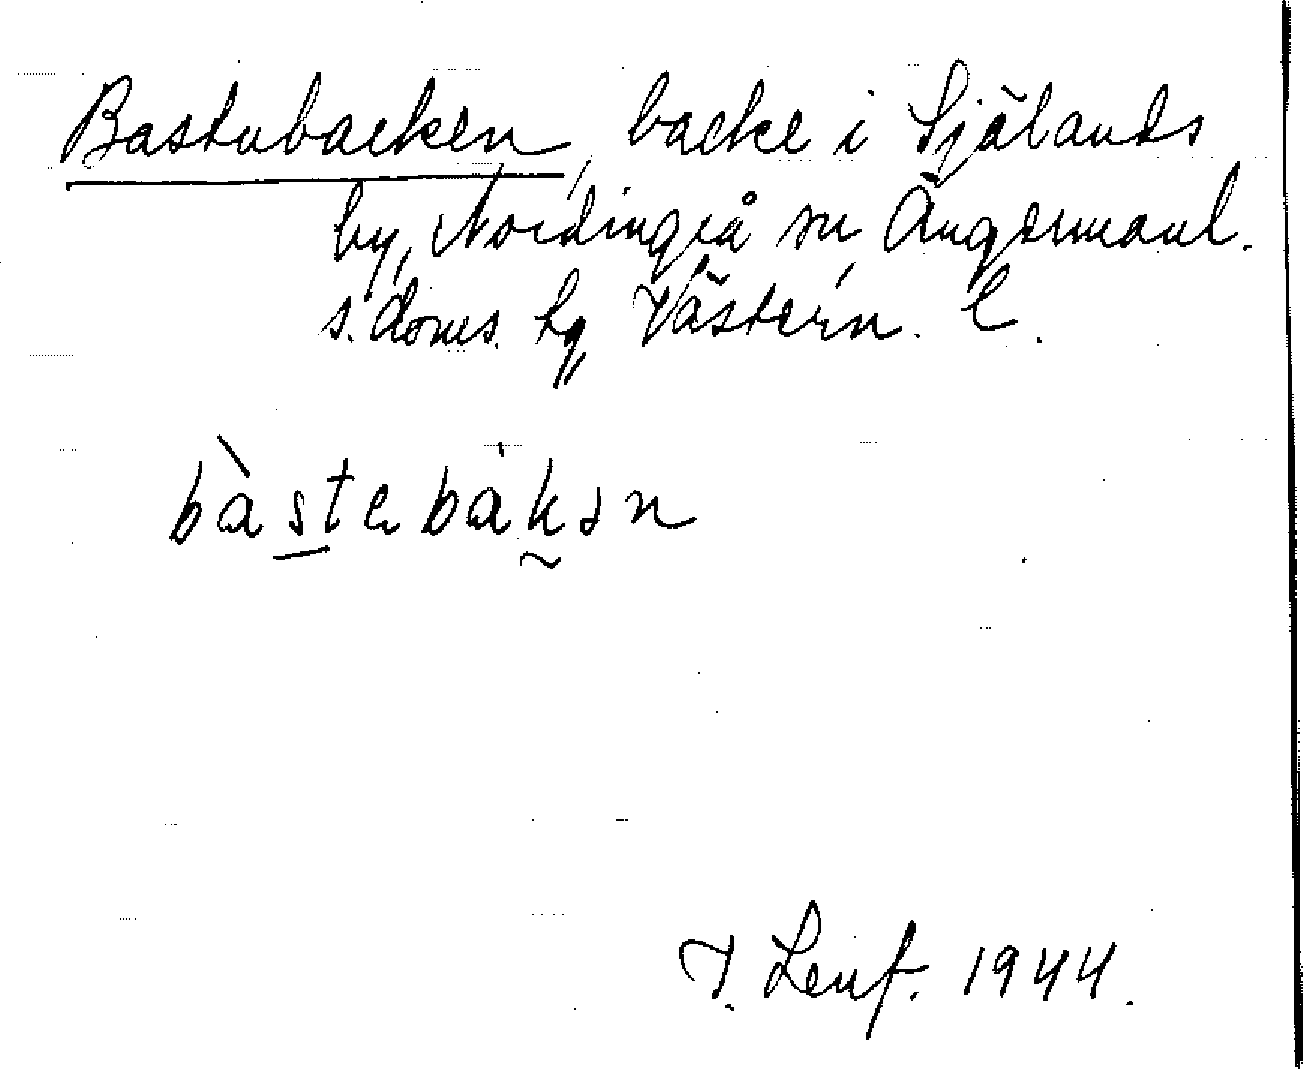 Bastubacken, backe i Själands
by, Nordingrå sn Ångermanl.
s. doms. hg, Västern. l.
bàstebàkən
I. Lenf. 1944.